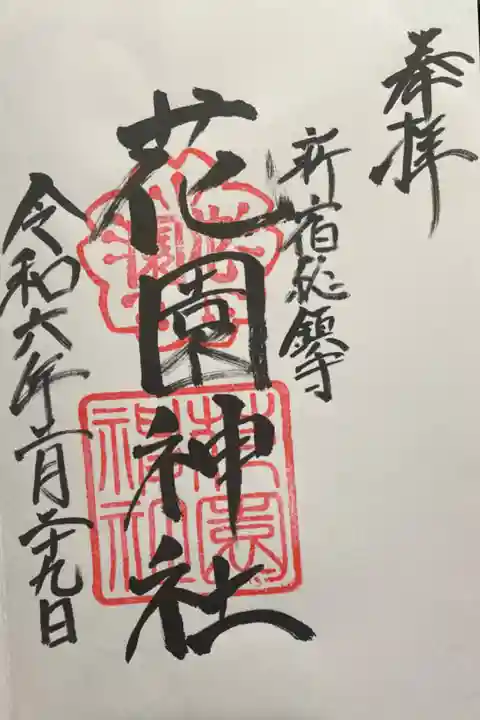 奉拝
新宿総鎮守
花園神社
令和六年二月二十九日
花園
神社